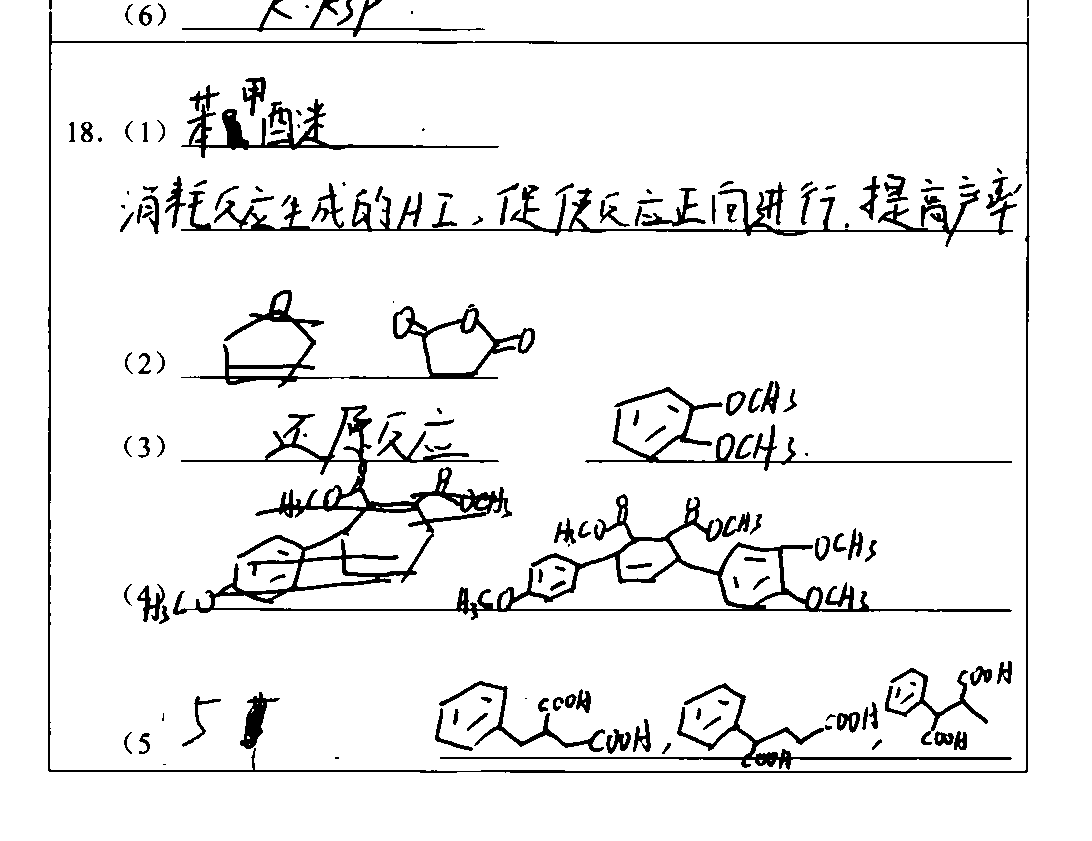 (6) K·Ksp
18. (1) 苯甲醚
消耗反应生成的HI,促使反应正向进行.提高产率
(2) O O O
(3) 还原反应 OCH3
OCH3.
H3CO O O OCH3 H3CO O O OCH3
OCH3
(4) H3CO H3CO OCH3
(5 5 COOH COOH, COOH COOH, COOH COOH